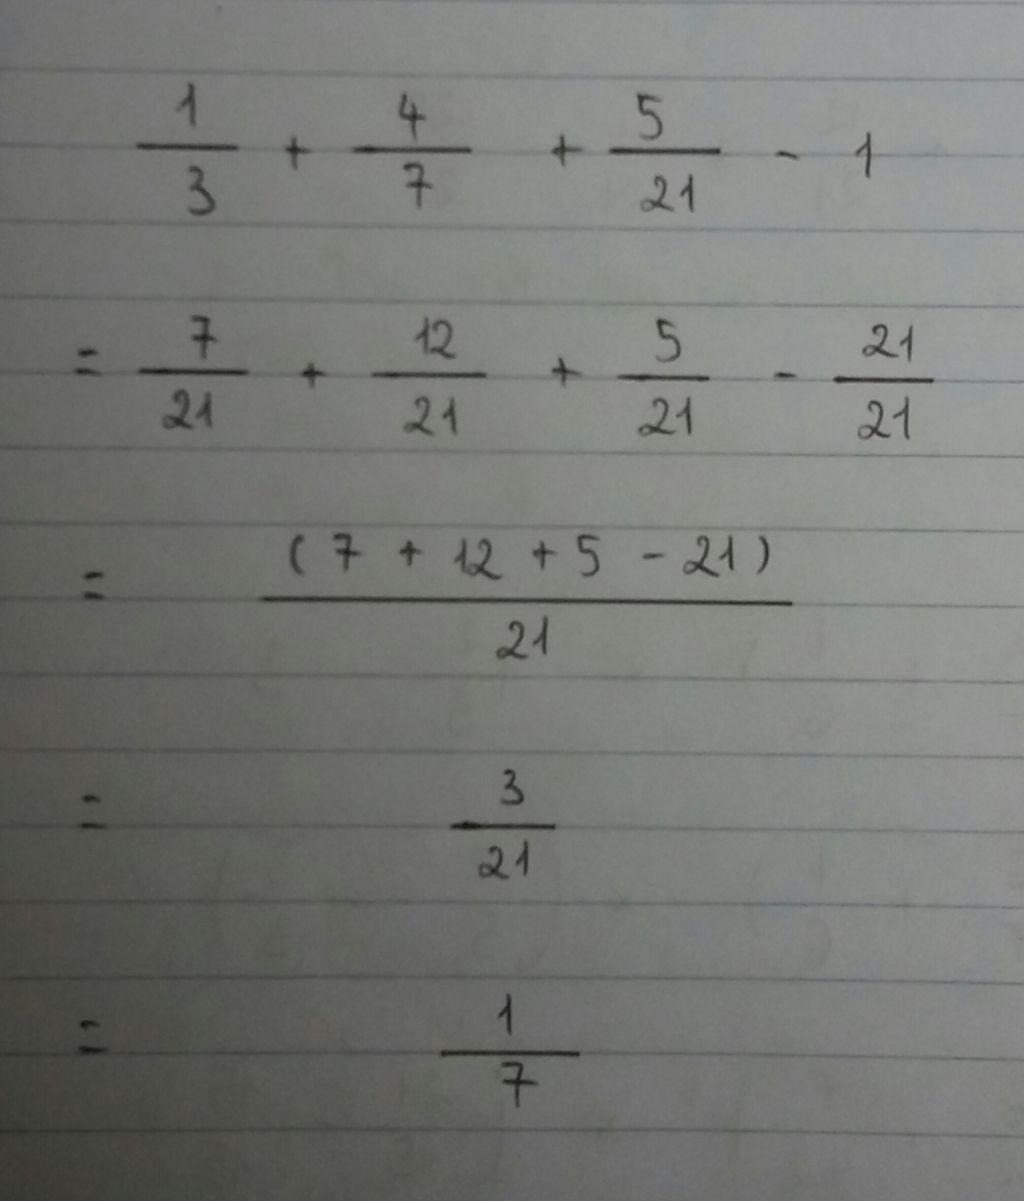 1/3 + 4/7 + 5/21 - 1
= 7/21 + 12/21 + 5/21 - 21/21
= (7 + 12 + 5 - 21)/21
= 3/21
= 1/7